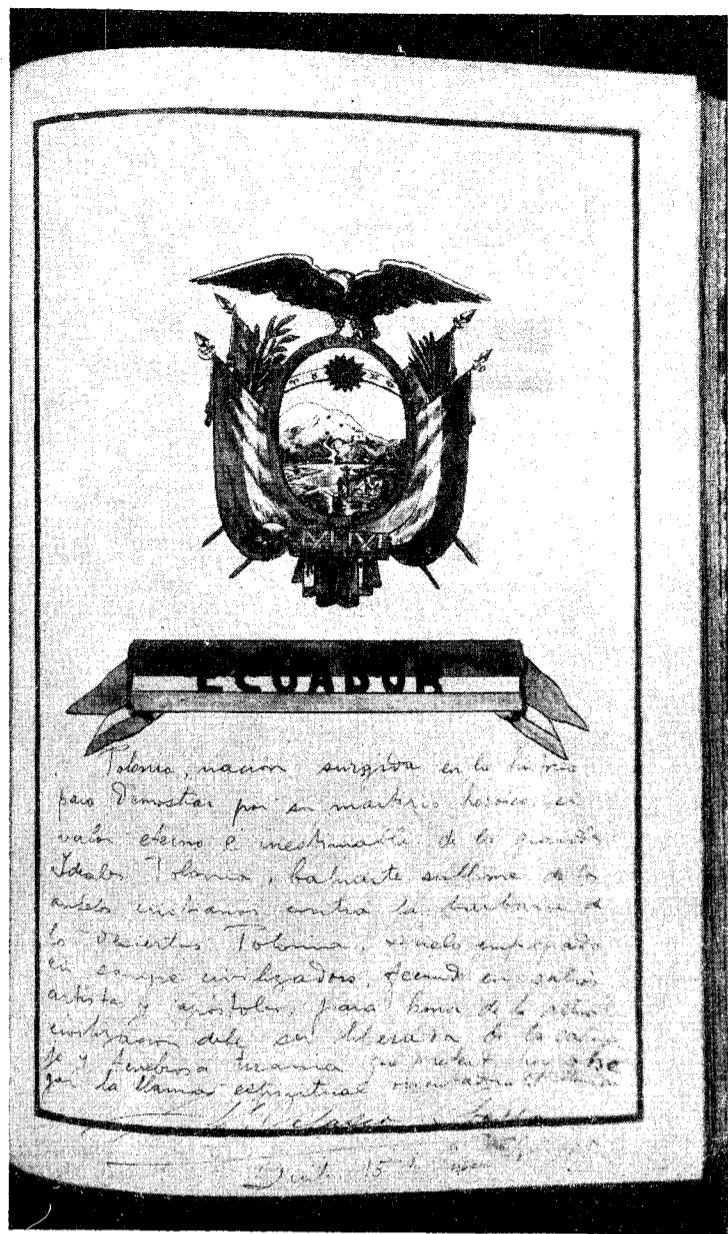 ECUADOR
Polonia, nacion surgida en la
para demostrar por su martirio heroico el
valor eterno e inestimable de los grandes
Ideales Polonia, baluarte sublime de los
anhelos cristianos contra la barbarie de
los desiertos Polonia, suelo empapado
en sangre civilizadora, fecundo en sabios
artistas y apóstoles, para honor de la actual
civilizacion debe ser liberada de la
y tenebrosa tirania que pretende hoy aho
gar la llama espiritual
Velasco Ibarra
Quito 15 de